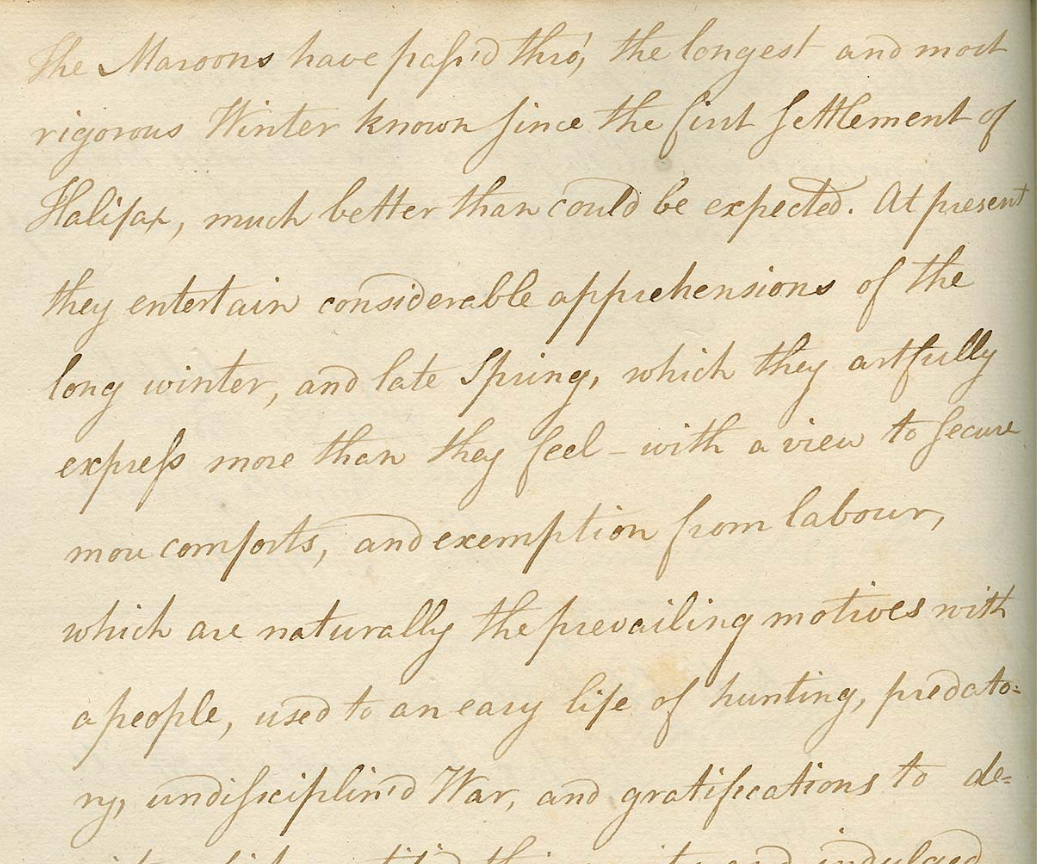 The Maroons have pass'd thro', the longest and most
rigorous Winter known since the first settlement of
Halifax, much better than could be expected. At present
they entertain considerable apprehensions of the
long winter, and late Spring, which they artfully
express more than they feel – with a view to secure
more comforts, and exemption from labour,
which are naturally the prevailing motives with
a people, used to an easy life of hunting, predato=
ry, undisciplin'd War, and gratifications to de=
and indulged